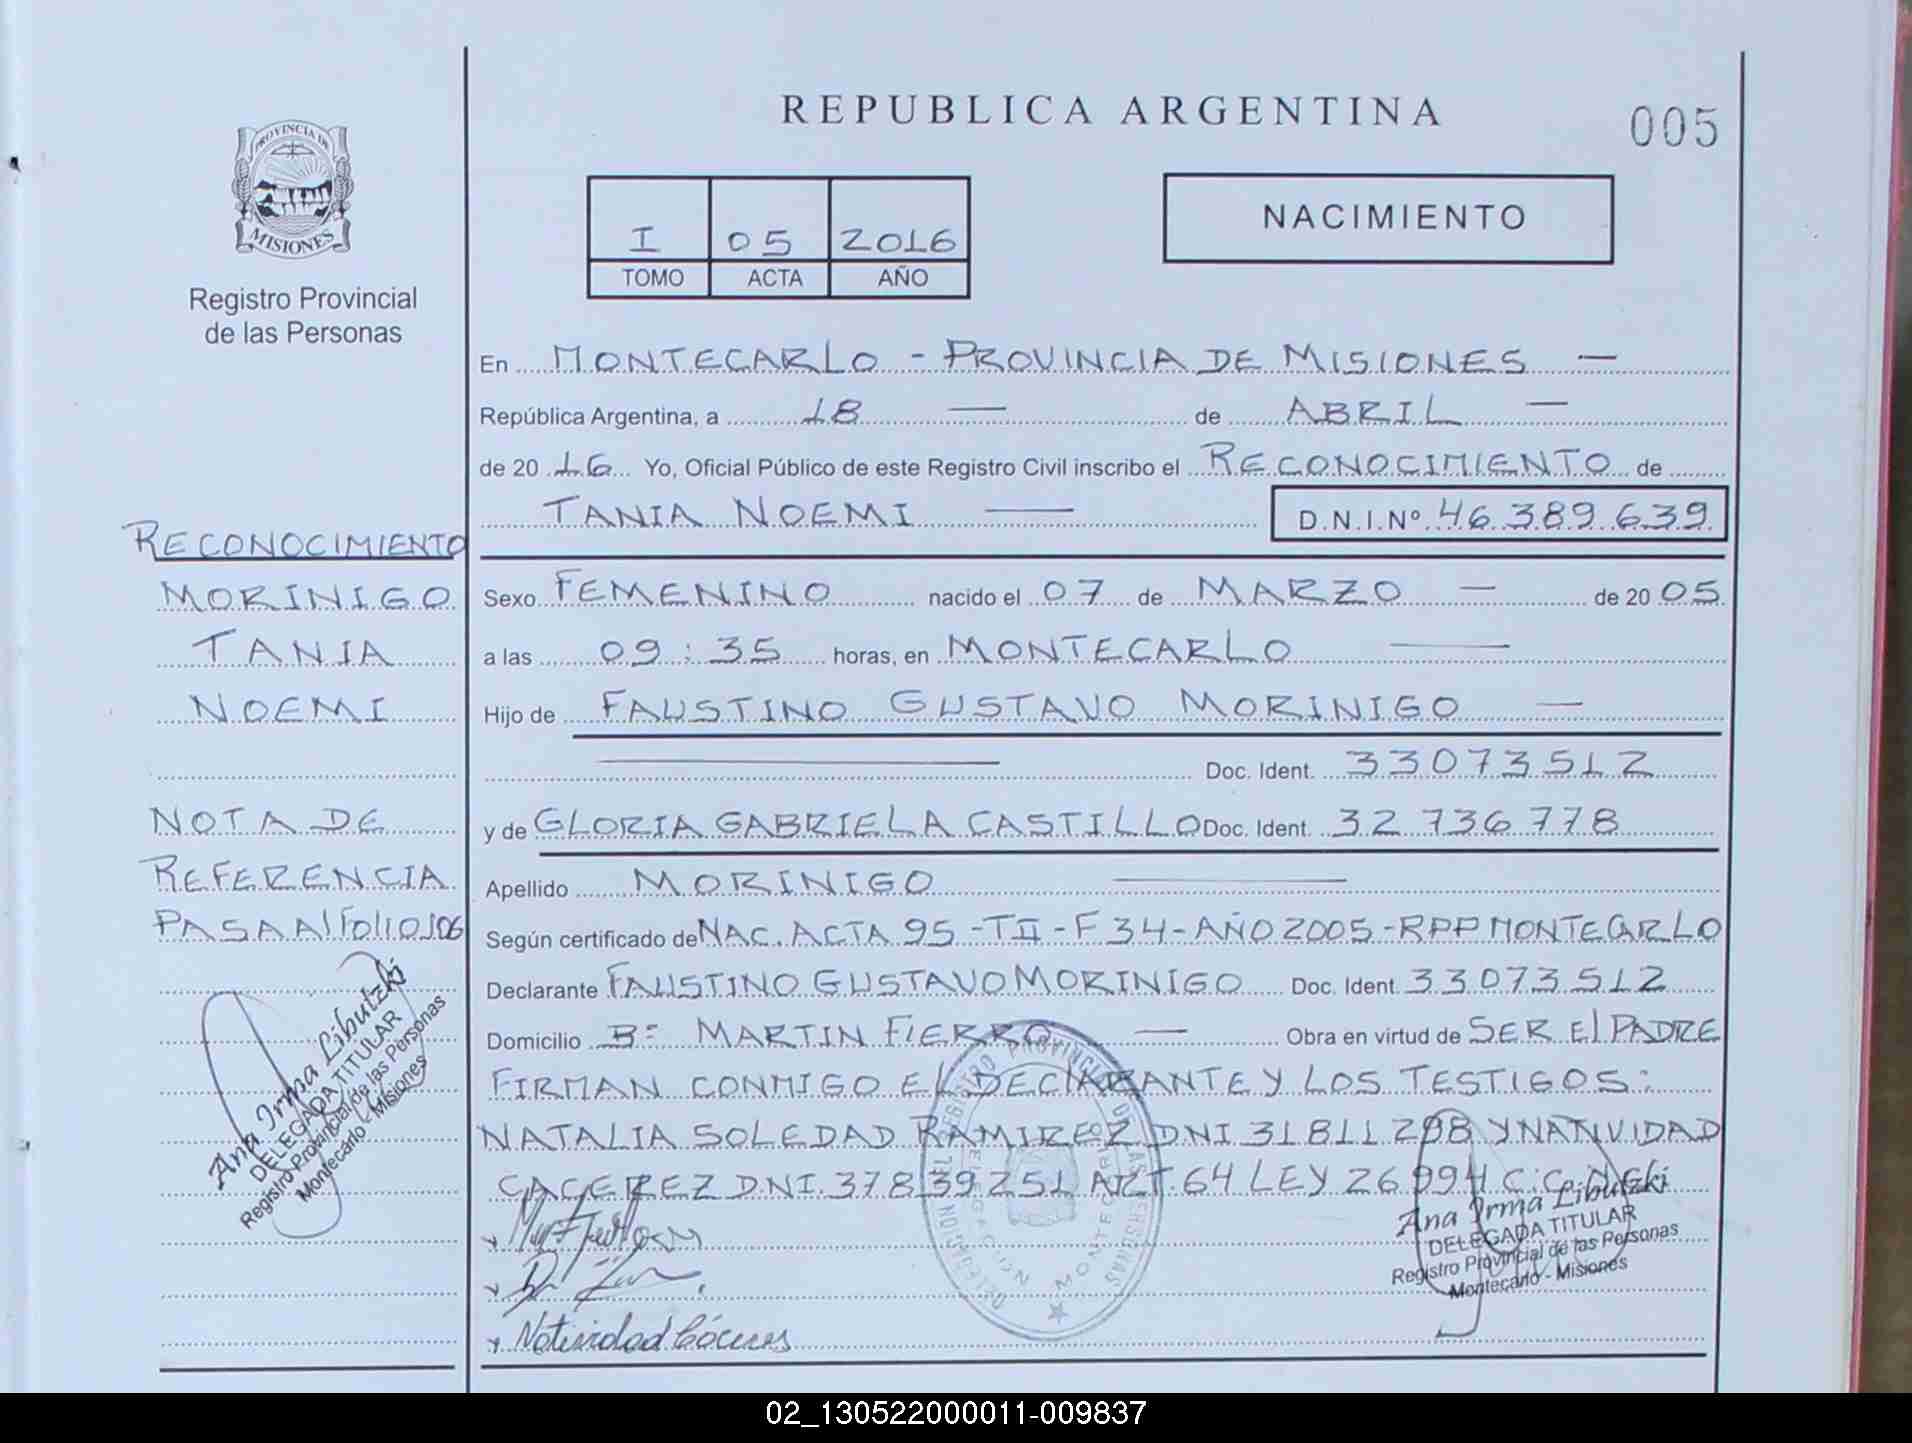 REPUBLICA ARGENTINA
005
PROVINCIA DE
MISIONES
Registro Provincial
de las Personas
I 05 2016
TOMO ACTA AÑO
NACIMIENTO
En MONTECARLO - PROVINCIA DE MISIONES —
República Argentina, a 18 — de ABRIL —
de 20 16 Yo, Oficial Público de este Registro Civil inscribo el RECONOCIMIENTO de
TANIA NOEMI — D.N.I.Nº 46.389.639
Sexo FEMENINO nacido el 07 de MARZO — de 20 05
a las 09:35 horas, en MONTECARLO —
Hijo de FAUSTINO GUSTAVO MORINIGO —
— Doc. Ident. 33073512
y de GLORIA GABRIELA CASTILLO Doc. Ident. 32 736 778
Apellido MORINIGO —
Según certificado de NAC. ACTA 95 - TII - F 34 - AÑO 2005 - RPP MONTECARLO
Declarante FAUSTINO GUSTAVO MORINIGO Doc. Ident. 33073512
Domicilio Bº MARTIN FIERRO — Obra en virtud de SER El PADRE
FIRMAN CONMIGO EL DECLARANTE Y LOS TESTIGOS:
NATALIA SOLEDAD RAMIREZ DNI 31811298 Y NATIVIDAD
CACEREZ DNI. 37839251 ART. 64 LEY 26994 C.C.
Natividad Cáceres
RECONOCIMIENTO
MORINIGO
TANIA
NOEMI
NOTA DE
REFERENCIA
PASA Al Folio 106
Ana Irma Libutzki
DELEGADA TITULAR
Registro Provincial de las Personas
Montecarlo - Misiones
Ana Irma Libutzki
DELEGADA TITULAR
Registro Provincial de las Personas
Montecarlo - Misiones
DELEGACION DEL REGISTRO PROVINCIAL DE LAS PERSONAS
DELEGACIÓN MONTECARLO
02_130522000011-009837